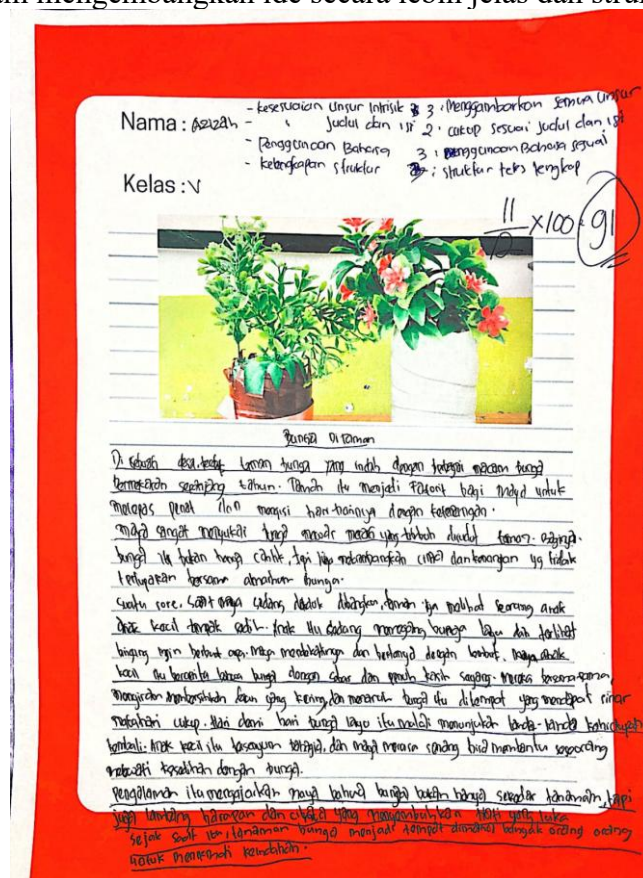 mengembangkan ide secara lebih jelas dan
Nama : Azizah
- kesesuaian unsur Intrisik 3 : Menggambarkan semua unsur
- " Judul dan isi 2 : cukup sesuai judul dan isi
- Penggunaan Bahasa 3 : penggunaan Bahasa sesuai
- kelengkapan struktur : struktur teks lengkap
Kelas : V
11
x100 = 91
Bunga Di Taman
Di sebuah desa, taman bunga yang indah dengan berbagai macam bunga
bermekaran sepanjang tahun. Taman itu menjadi Favorit bagi maya untuk
melepas penat dan mengisi hari-harinya dengan ketenangan.
maya sangat menyukai bunga mawar merah yang tumbuh disudut taman. Baginya.
bunga itu bukan hanya cantik, tapi juga melambangkan cinta dan kenangan yg tidak
terlupakan bersama almarhum bunga.
Suatu sore, saat maya sedang duduk dibangku taman. Iya melihat seorang anak
anak kecil tampak sedih. Anak itu sedang memegang bunga layu dan terlihat
bingung ingin berbuat apa. maya mendekatinya dan bertanya dengan lembut. anak
kecil itu bercerita bahwa bunga dengan sabar dan penuh kasih sayang. mereka bersama-sama
membersihkan daun yang kering, dan menaruh bunga itu ditempat yang mendapat sinar
matahari cukup. Hari demi hari bunga layu itu mulai menunjukan tanda-tanda kehidupan
kembali. Anak kecil itu tersenyum bahagia, dan maya merasa senang bisa membantu seseorang
melewati kesedihan dengan bunga.
pengalaman itu mengajarkan maya bahwa bunga bukan hanya sekadar tanaman, tapi
juga lambang harapan dan cinta yang menyembuhkan hati yang luka
sejak saat itu, tanaman bunga menjadi tempat dimana banyak orang orang
untuk menikmati keindahan.